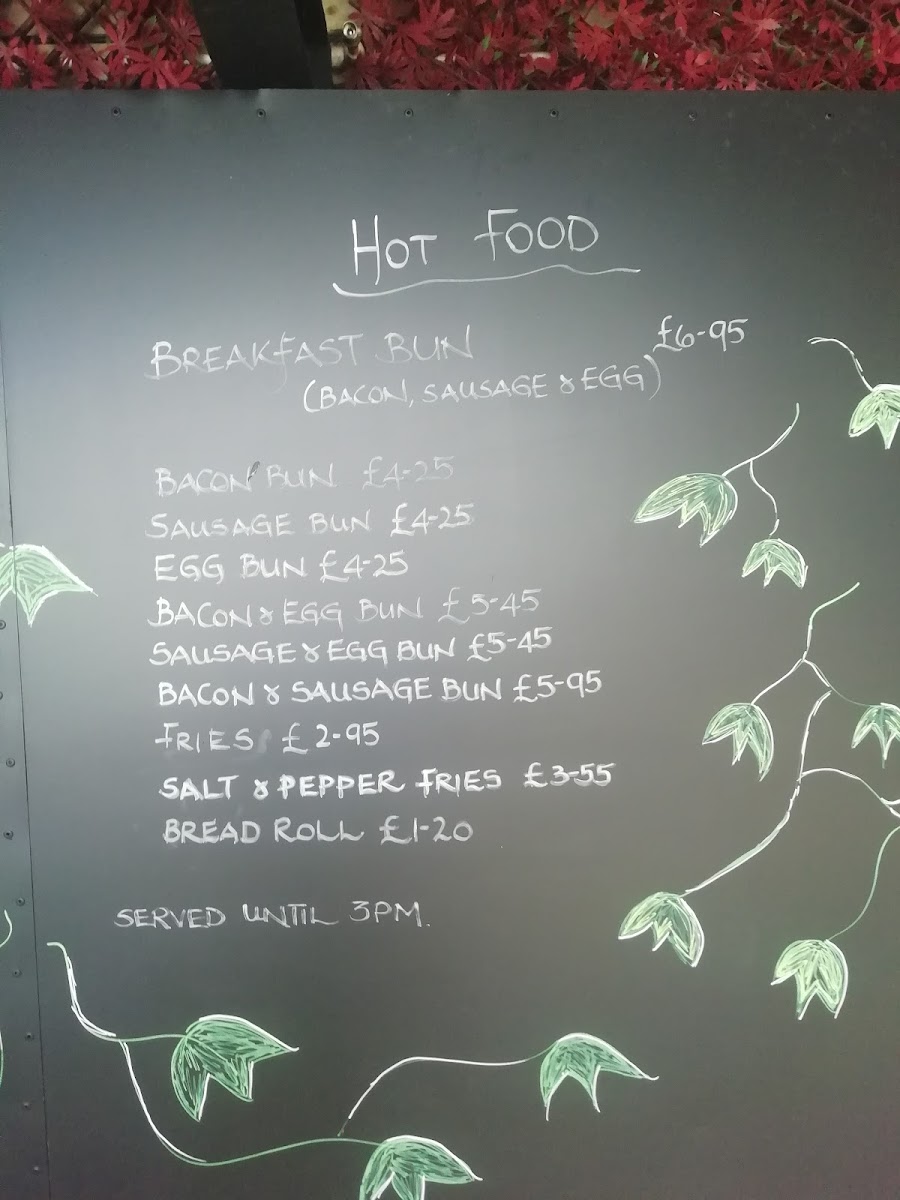 HOT FOOD
BREAKFAST BUN £6-95
(BACON, SAUSAGE & EGG)
BACON BUN £4-25
SAUSAGE BUN £4-25
EGG BUN £4-25
BACON & EGG BUN £5-45
SAUSAGE & EGG BUN £5-45
BACON & SAUSAGE BUN £5-95
FRIES £2-95
SALT & PEPPER FRIES £3-55
BREAD ROLL £1-20
SERVED UNTIL 3PM.